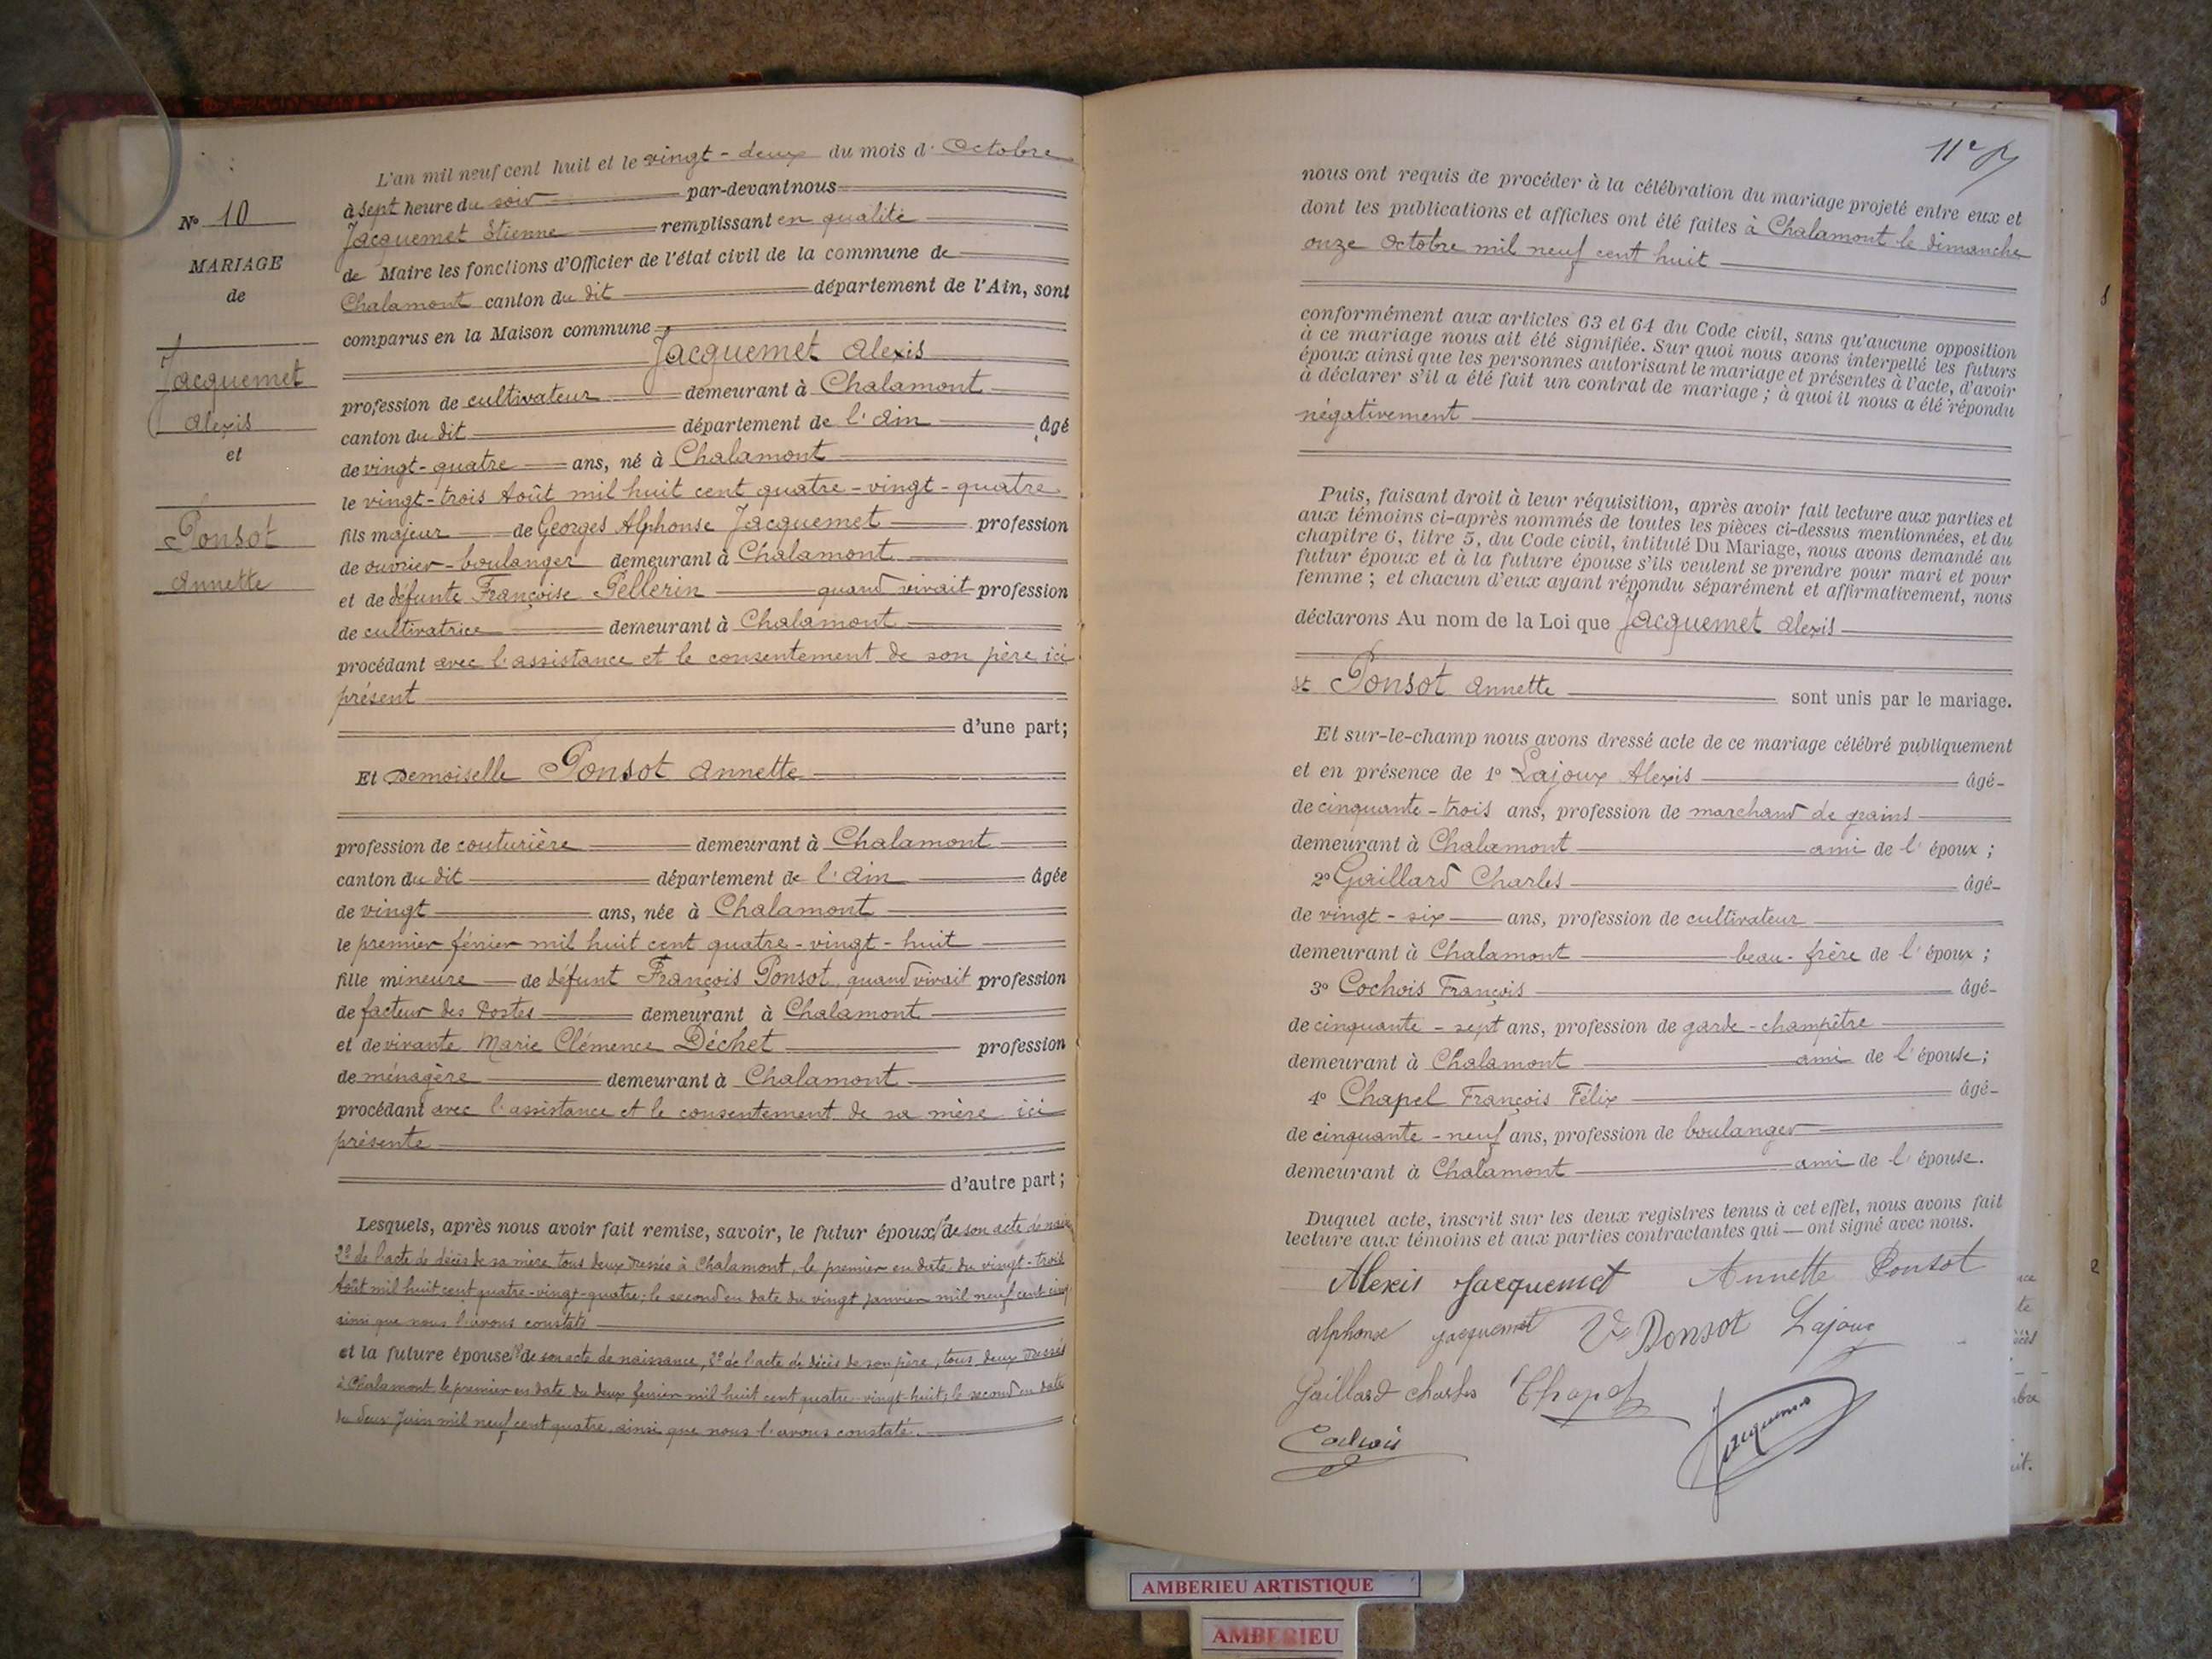 L'an mil neuf cent huit et le vingt-deux du mois d'Octobre
à sept heure du soir par-devant nous
Jacquemet Etienne remplissant en qualité
de Maire les fonctions d'Officier de l'état civil de la commune de
Chalamont canton du dit département de l'Ain, sont
comparus en la Maison commune
Jacquemet Alexis
profession de cultivateur demeurant à Chalamont
canton du dit département de l'Ain âgé
de vingt-quatre ans, né à Chalamont
le vingt-trois Août mil huit cent quatre-vingt-quatre
fils majeur de Georges Alphonse Jacquemet profession
de ouvrier-boulanger demeurant à Chalamont
et de défunte Françoise Pellerin quand vivait profession
de cultivatrice demeurant à Chalamont
procédant avec l'assistance et le consentement de son père ici
présent
d'une part;
Et Demoiselle Ponsot Annette
profession de couturière demeurant à Chalamont
canton du dit département de l'Ain âgée
de vingt ans, née à Chalamont
le premier février mil huit cent quatre-vingt-huit
fille mineure de défunt François Ponsot, quand vivait profession
de facteur des Postes demeurant à Chalamont
et de vivante Marie Clémence Déchet profession
de ménagère demeurant à Chalamont
procédant avec l'assistance et le consentement de sa mère ici
présente
d'autre part;
Lesquels, après nous avoir fait remise, savoir, le futur époux 1° de son acte de nais
2° de l'acte de décès de sa mère tous deux dressés à Chalamont, le premier en date du vingt-trois
Août mil huit cent quatre-vingt-quatre; le second en date du vingt janvier mil neuf cent cinq
ainsi que nous l'avons constaté
et la future épouse 1° de son acte de naissance, 2° de l'acte de décès de son père, tous deux dressés
à Chalamont le premier en date du deux février mil huit cent quatre-vingt-huit; le second en date
du deux Juin mil neuf cent quatre, ainsi que nous l'avons constaté.
N° 10
MARIAGE
de
Jacquemet
Alexis
et
Ponsot
Annette
11
nous ont requis de procéder à la célébration du mariage projeté entre eux et
dont les publications et affiches ont été faites à Chalamont le dimanche
onze Octobre mil neuf cent huit
conformément aux articles 63 et 64 du Code civil, sans qu'aucune opposition
à ce mariage nous ait été signifiée. Sur quoi nous avons interpellé les futurs
époux ainsi que les personnes autorisant le mariage et présentes à l'acte, d'avoir
à déclarer s'il a été fait un contrat de mariage; à quoi il nous a été répondu
négativement
Puis, faisant droit à leur réquisition, après avoir fait lecture aux parties et
aux témoins ci-après nommés de toutes les pièces ci-dessus mentionnées, et du
chapitre 6, titre 5, du Code civil, intitulé Du Mariage, nous avons demandé au
futur époux et à la future épouse s'ils veulent se prendre pour mari et pour
femme; et chacun d'eux ayant répondu séparément et affirmativement, nous
déclarons Au nom de la Loi que Jacquemet Alexis
et Ponsot Annette sont unis par le mariage.
Et sur-le-champ nous avons dressé acte de ce mariage célébré publiquement
et en présence de 1° Lajoux Alexis âgé
de cinquante-trois ans, profession de marchand de grains
demeurant à Chalamont ami de l'époux;
2° Gaillard Charles âgé
de vingt-six ans, profession de cultivateur
demeurant à Chalamont beau-frère de l'époux;
3° Cochois François âgé
de cinquante-sept ans, profession de garde-champêtre
demeurant à Chalamont ami de l'épouse;
4° Chapel François Félix âgé
de cinquante-neuf ans, profession de boulanger
demeurant à Chalamont ami de l'épouse.
Duquel acte, inscrit sur les deux registres tenus à cet effet, nous avons fait
lecture aux témoins et aux parties contractantes qui ont signé avec nous.
Alexis Jacquemet Annette Ponsot
Alphonse Jacquemet Ve Ponsot Lajoux
Gaillard Charles Chapel
Cochois Jacquemet
AMBERIEU ARTISTIQUE
AMBERIEU